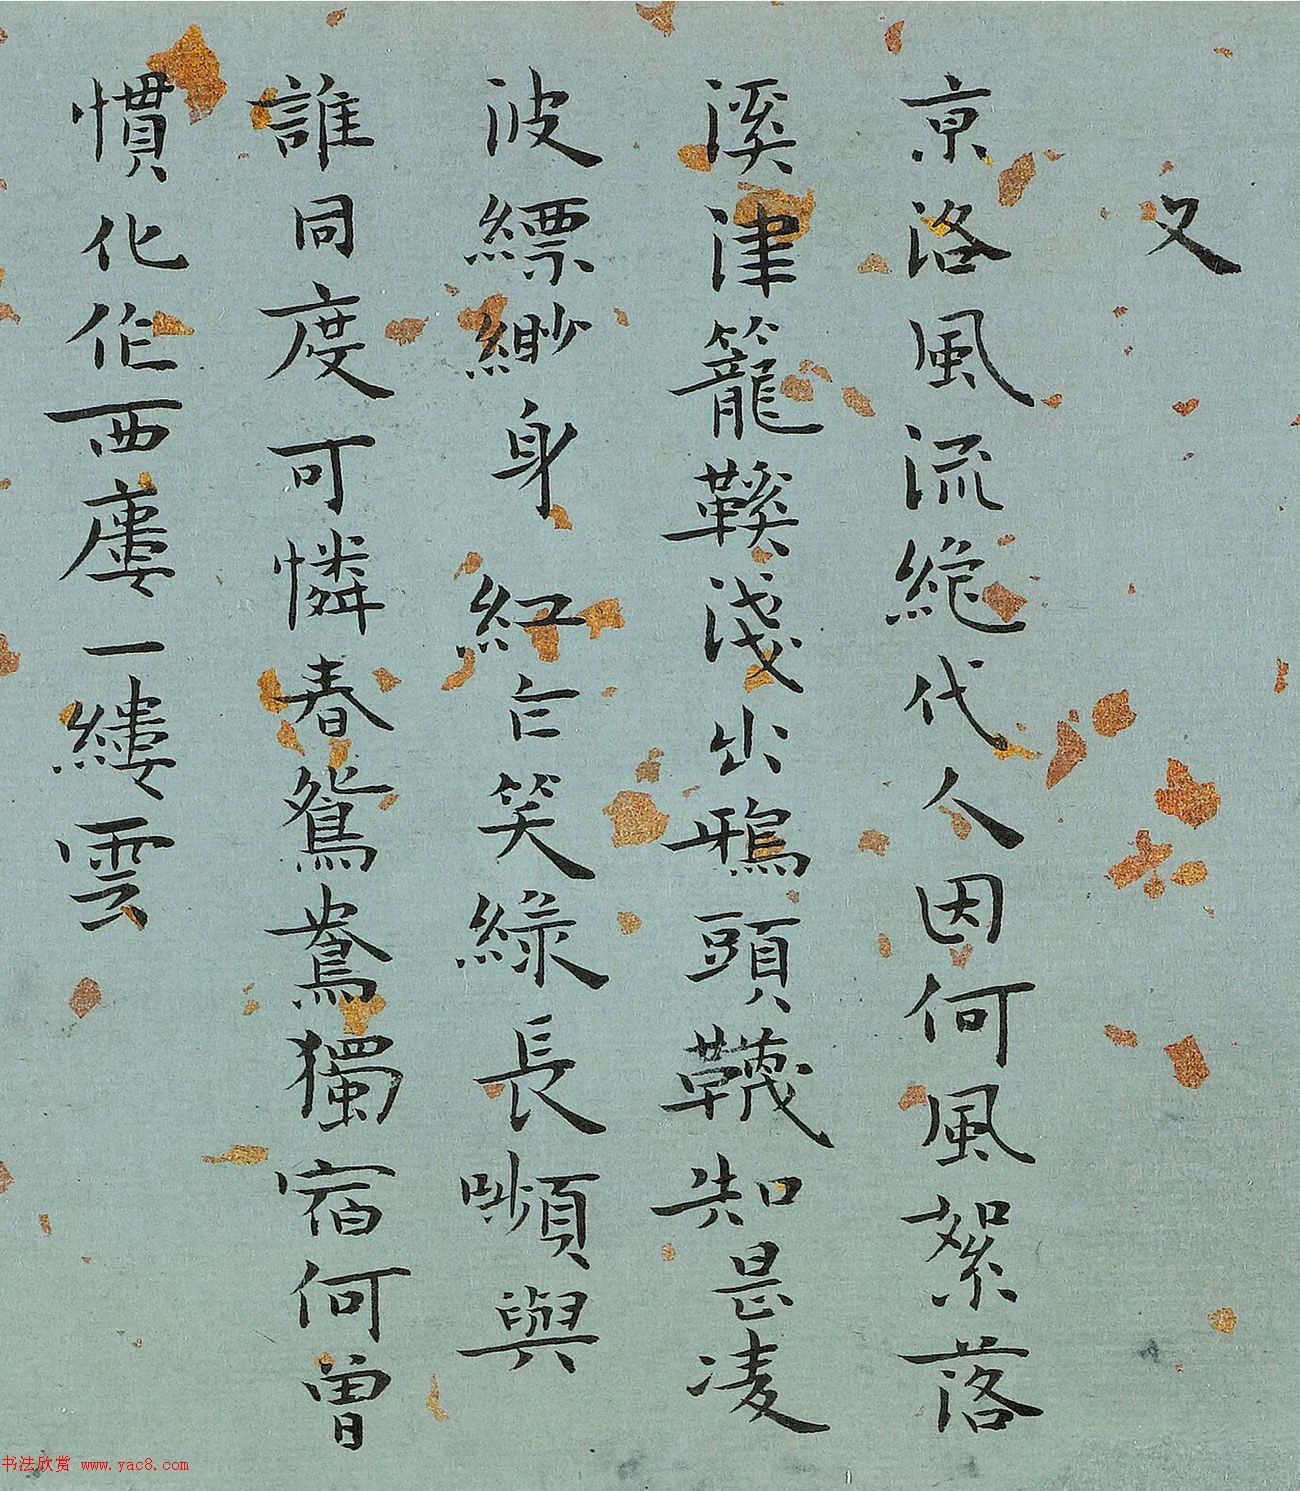 又
京洛風流絶代人因何風絮落
溪津籠鞵淺出鴉頭韈知是凌
波縹緲身 紅乍笑綠長嚬與
誰同度可憐春鴛鴦獨宿何曾
慣化作西廔一縷雲
书法欣赏 www.yac8.com